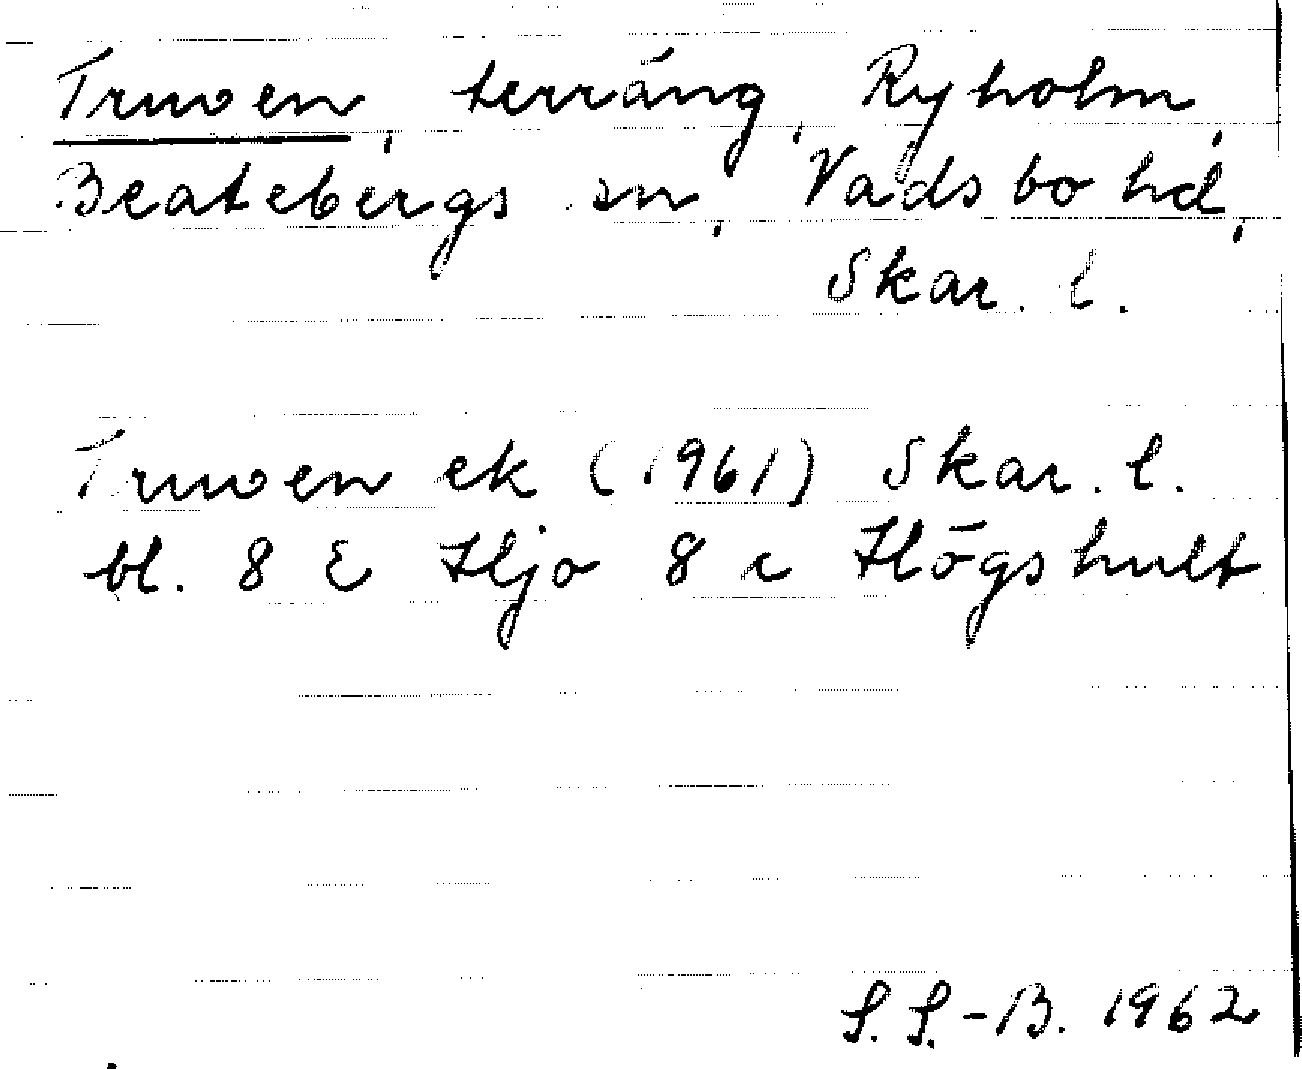 Truven, terräng, Ryholm,
Beatebergs sn, Vadsbo hd,
Skar. l.
Truven ek (1961) Skar. l.
bl. 8 E Hjo 8 c Högshult
S. S.-B. 1962